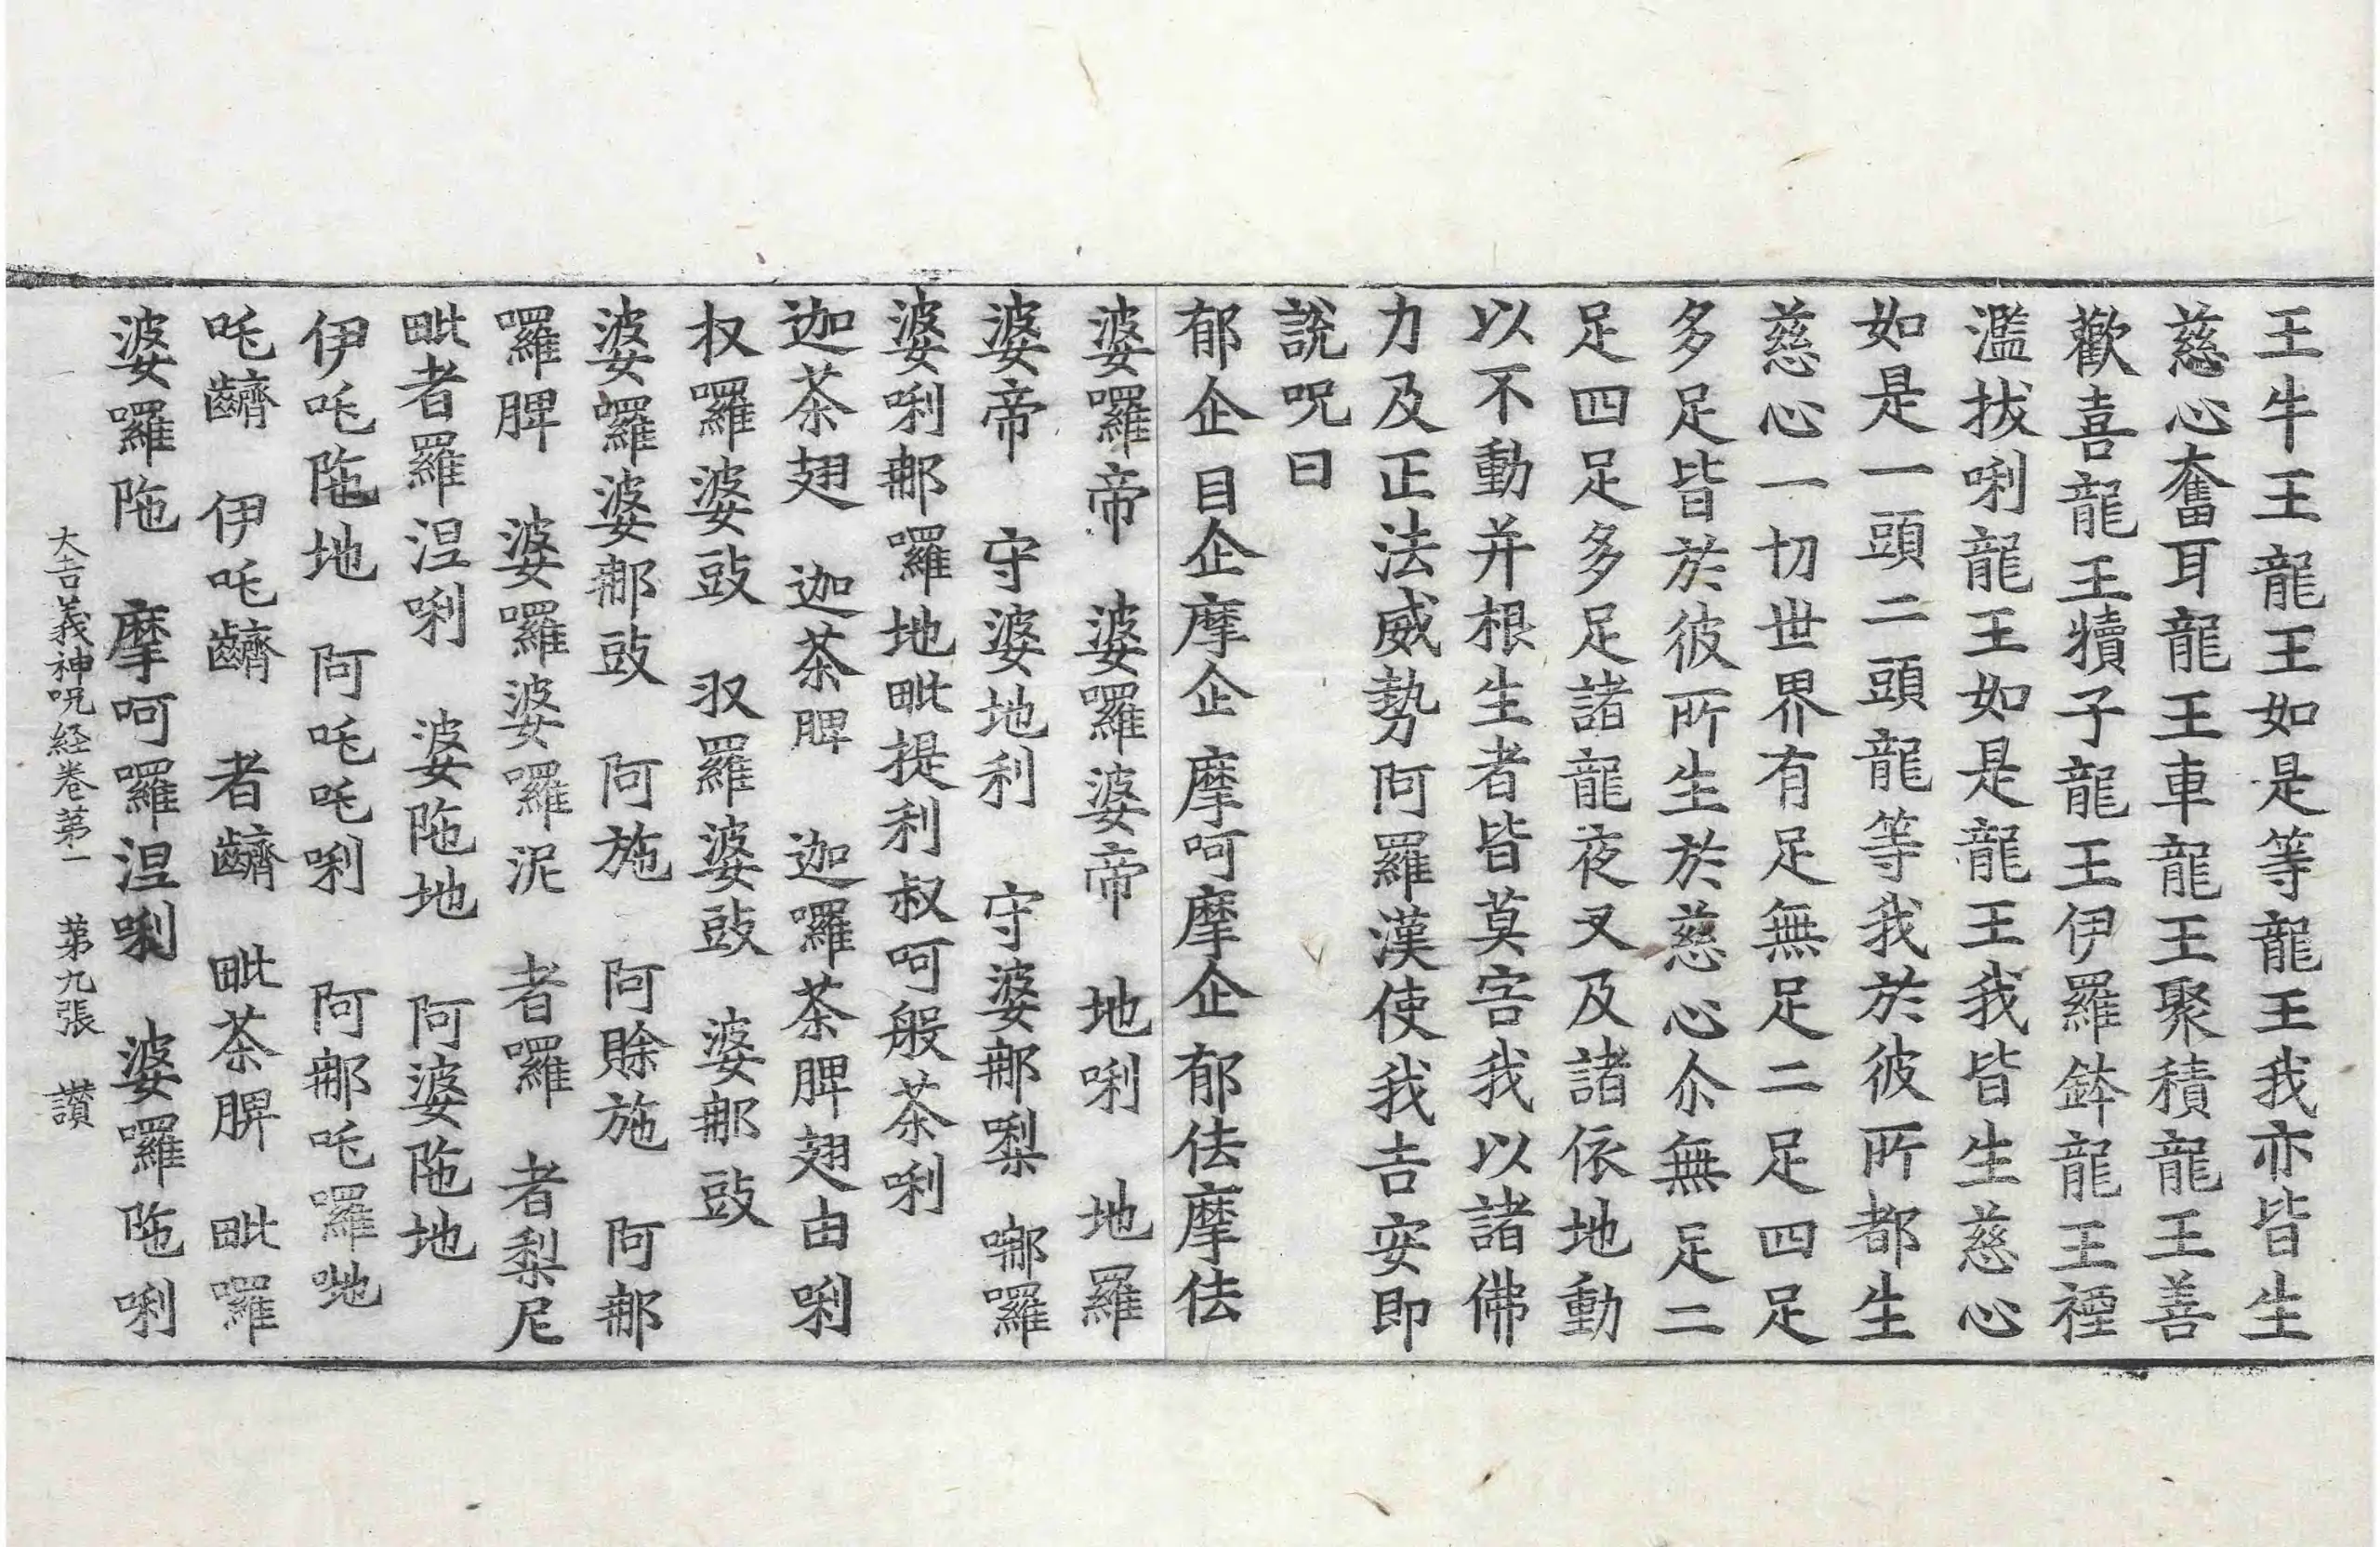 王牛王龍王如是等龍王我亦皆生
慈心奮耳龍王車龍王聚積龍王善
歡喜龍王犢子龍王伊羅鉢龍王禋
濫拔唎龍王如是龍王我皆生慈心
如是一頭二頭龍等我於彼所都生
慈心一切世界有足無足二足四足
多足皆於彼所生於慈心尒無足二
足四足多足諸龍夜叉及諸依地動
以不動并根生者皆莫害我以諸佛
力及正法威勢阿羅漢使我吉安即
說呪曰
郁企目企摩企摩呵摩企郁佉摩佉
婆囉帝 婆囉婆帝 地唎 地羅
婆帝 守婆地利 守婆那梨 哪囉
婆唎那囉地毗提利叔呵般茶唎
迦茶翅 迦茶脾 迦囉茶脾翅由唎
杈囉婆豉 羖羅婆豉 婆那豉
婆囉婆那豉 阿施 阿賖施 阿那
囉脾 婆囉婆囉泥 者囉 者梨尼
毗者羅涅唎 婆陁地 阿婆陁地
伊吒陁地 阿吒吒唎 阿那吒囉吔
吒齎 伊吒齎 者齎 毗茶脾 毗囉
婆囉陁 摩呵囉涅唎 婆囉陁唎
大吉義神呪経卷苐一 苐九張 讃